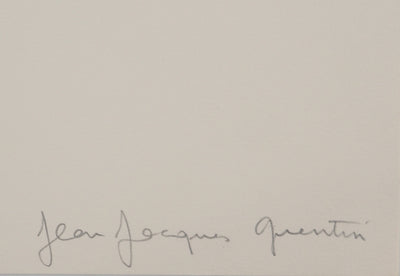 Jean Jacques Quentin